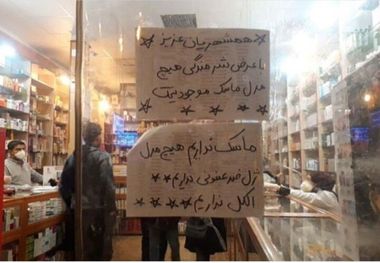 * همشهریان عزیز *
با عرض شرمندگی هیچ
مدل ماسک موجود نیست
ماسک نداریم هیچ مدل
ژل ضدعفونی نداریم **
* الکل نداریم * *